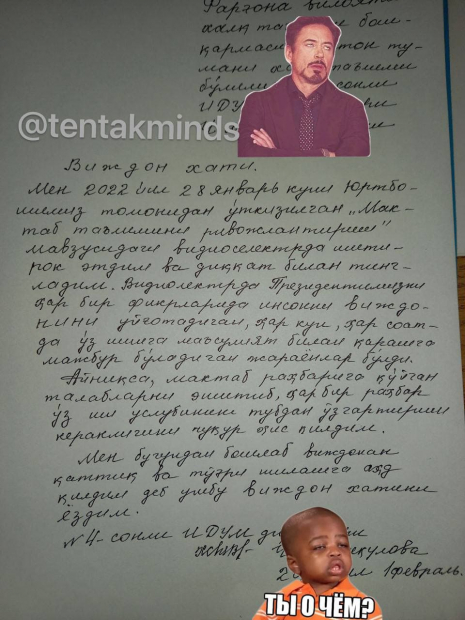 Фарғона вилоят
халқ та бош-
қармаси тон ту-
мани ха таълими
бўлими сонли
ИДУ
@tentakminds
Виждон хати.
Мен 2022 йил 28 январь куни Юртбо-
шимиз томонидан ўтказилган „Мак-
таб таълимини ривожлантириш"
мавзусидаги видиоселектрда ишти-
рок этдим ва диққат билан тинг-
ладим. Видиолектрда Президентимизни
ҳар бир фикрларида инсонни виждо-
нини уйғотадиган, ҳар кун, ҳар соат-
да ўз ишига маъсулият билан қарашга
мажбур бўладиган жараёнлар бўлди.
Айниқса, мактаб раҳбарига қўйган
талабларни эшитиб, ҳар бир раҳбар
ўз иш услубини тубдан ўзгартириши
кераклигини чуқур ҳис қилдим.
Мен бугундан бошлаб виждонан
қаттиқ ва тўғри ишлашга аҳд
қилдим деб ушбу виждон хатини
ёздим.
№4-сонли ИДУМ ди
кулова
2 ил 1 февраль.
ТЫ О ЧЁМ?